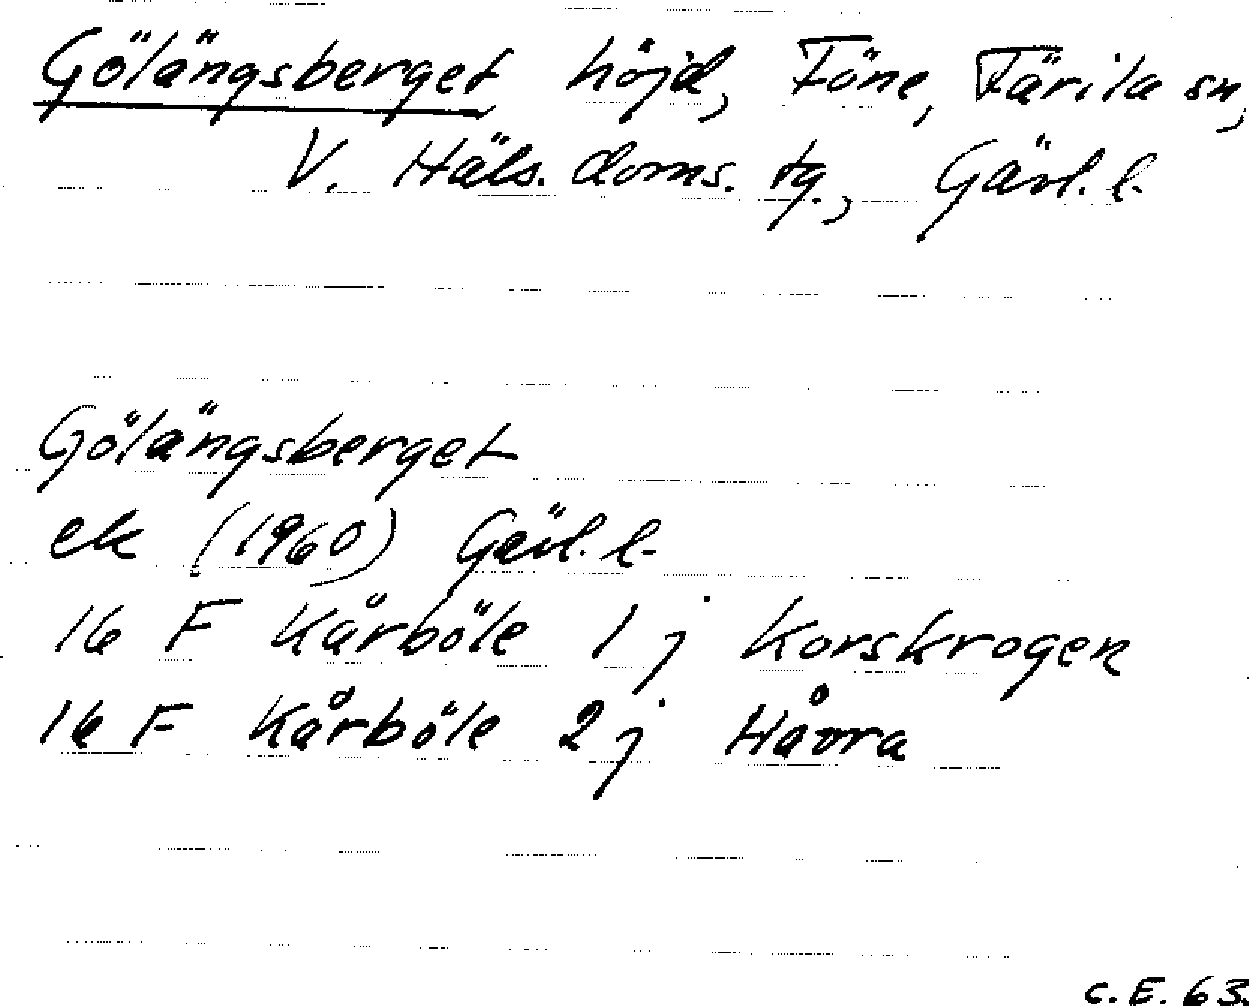 Gölängsberget höjd, Föne, Färila sn,
V. Häls. doms. tg., Gävl. l.
Gölängsberget
ek (1960) Gävl. l.
16 F Kårböle 1 j Korskrogen
16 F Kårböle 2 j Håvra
C. E. 63.